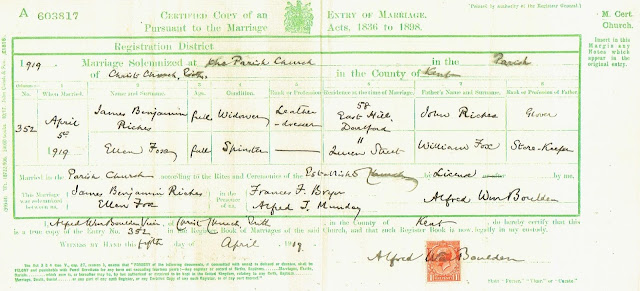 A 603817
CERTIFIED COPY of an ENTRY OF MARRIAGE.
Pursuant to the Marriage Acts, 1836 to 1898.
[Printed by authority of the Registrar General.]
M. Cert.
Church.
Insert in this Margin any Notes which appear in the original entry.
Registration District
1919 Marriage Solemnized at the Parish Church in the Parish
of Christ Church, Erith, in the County of Kent
No. When Married. Name and Surname. Age. Condition. Rank or Profession. Residence at the time of Marriage. Father's Name and Surname. Rank or Profession of Father
352 April 5th 1919 James Benjamin Riches full Widower Leather dresser 58 East Hill, Dartford John Riches Glover
Ellen Fox full Spinster — 11 Street William Fox Store-Keeper
Married in the Parish Church according to the Rites and Ceremonies of the Established Church by License by me,
This Marriage was James Benjamin Riches in the Presence Frances F. Bryor
Ellen Fox of us, Alfred J. Munday
Alfred Wm Boulden
I, Alfred Wm Boulden, Vicar of Christ Church, Erith in the County of Kent do hereby certify that this
is a true copy of the Entry No. 352 in the Register Book of Marriages of the said Church, and that such Register Book is now legally in my custody.
WITNESS MY HAND this fifth day of April 1919.
Alfred Wm Boulden